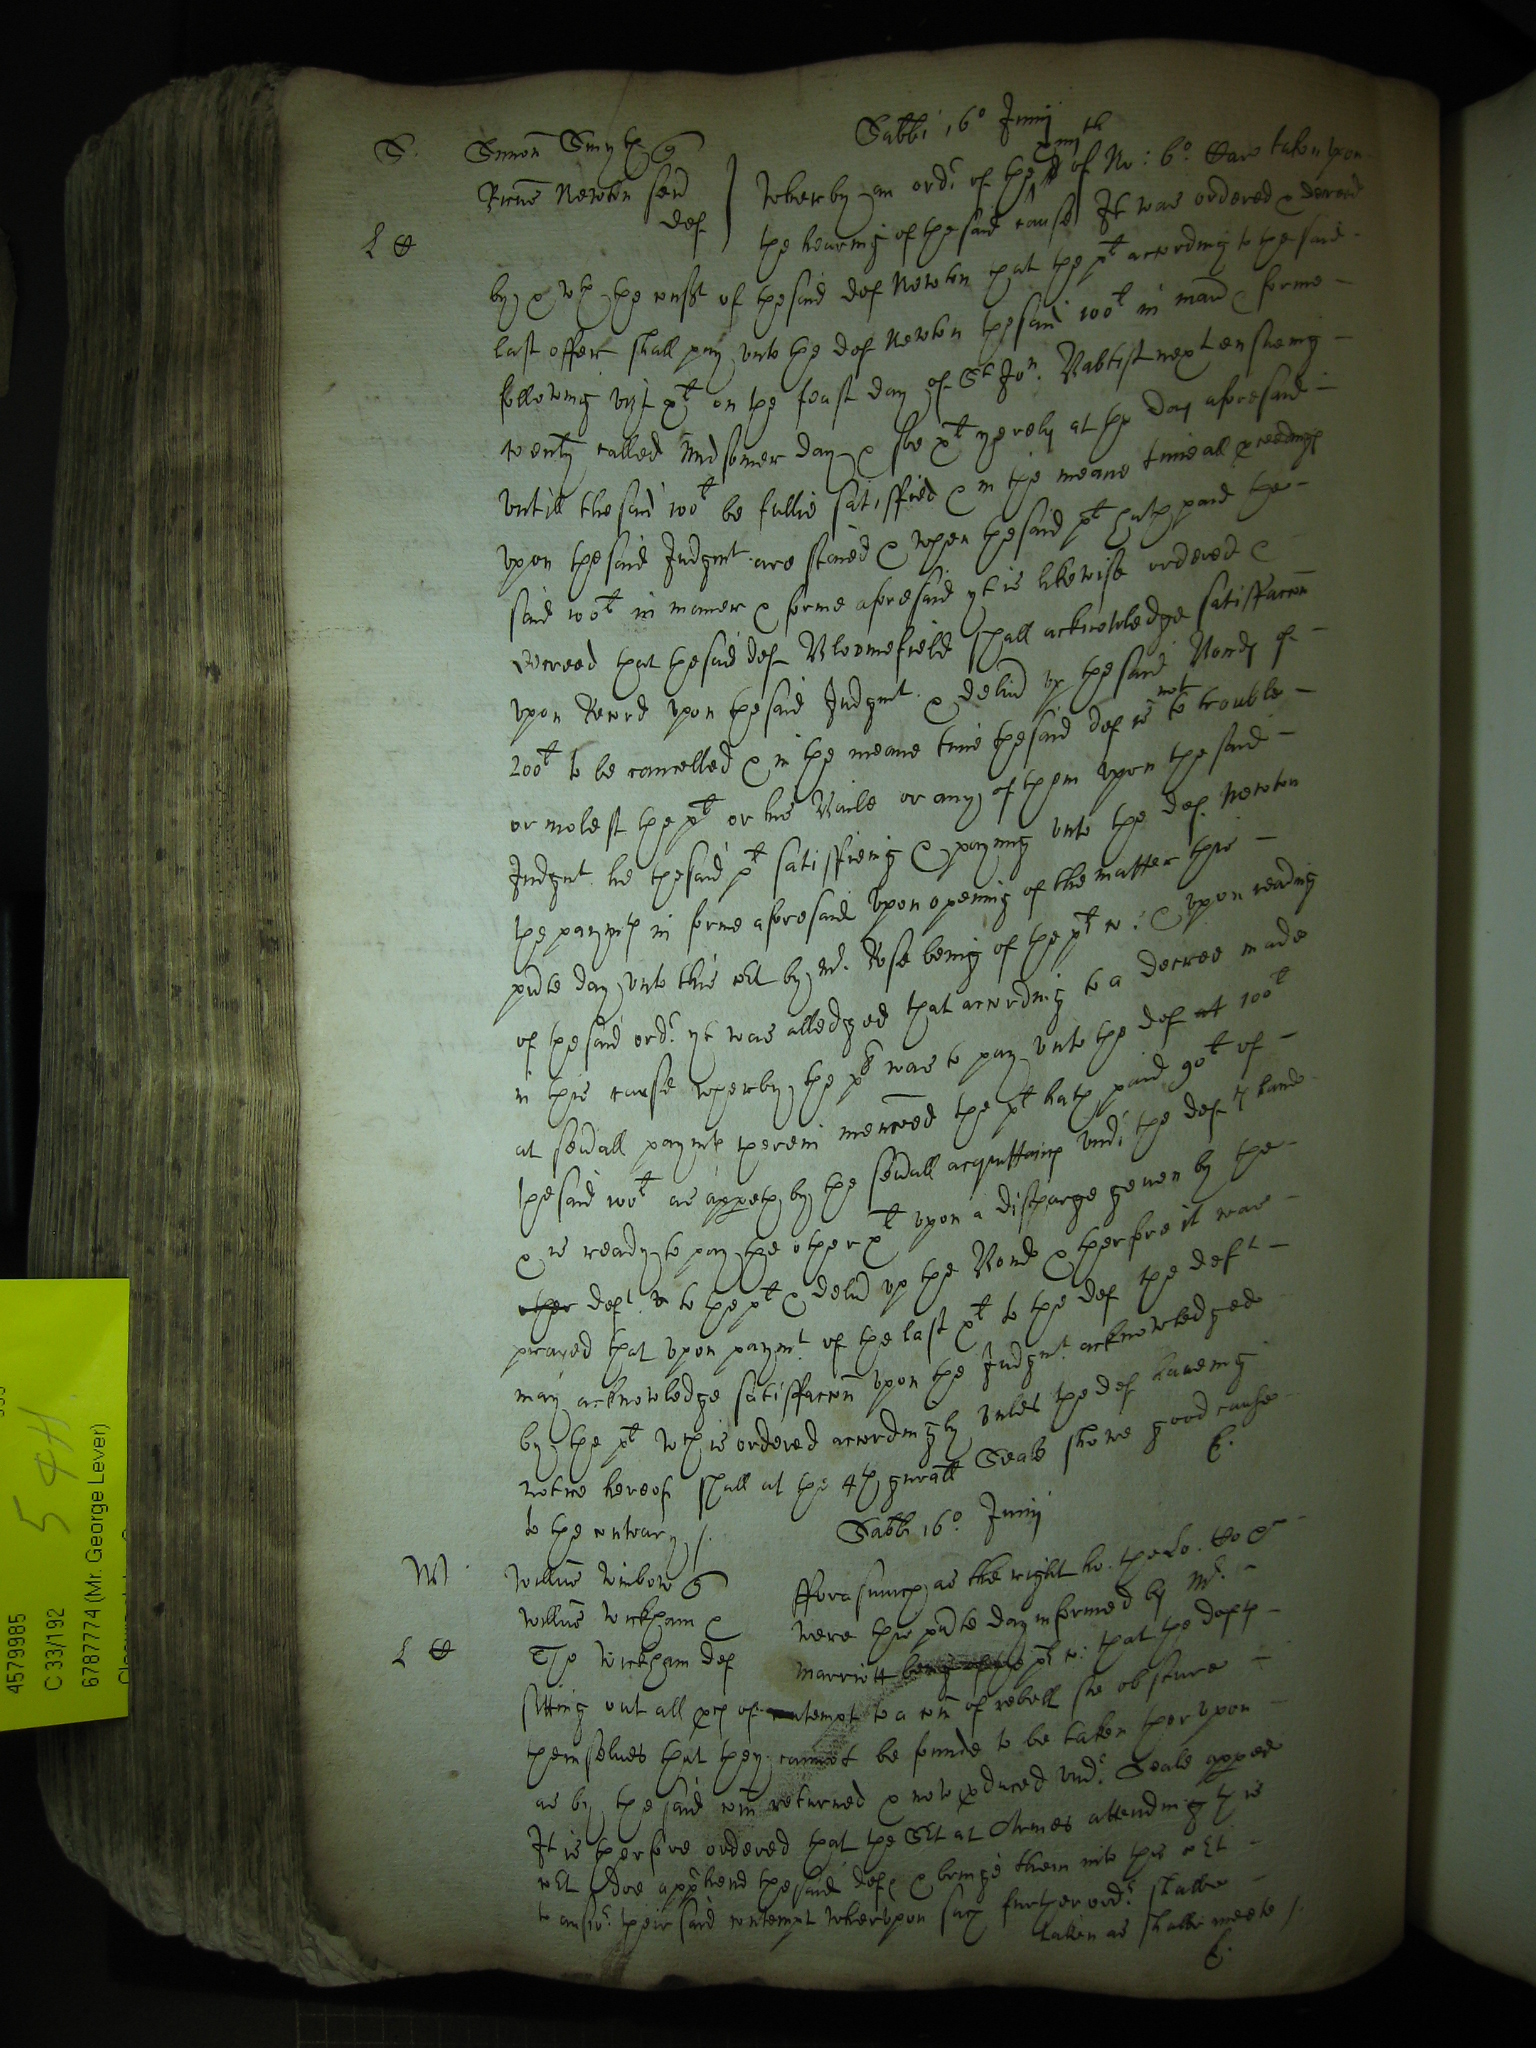 Sabbi 16o Junij
S. Simon Smyth q
Ricus Newton sen
def
Wherby an ordr. of the xxiiijth of No: 6o. Caro taken upon
L A
the hearing of the said cause It was ordered & decreed
by & wth the consst of the said def Newton that the plt according to the said
last offer shall pay unto the def Newton the said 100l in manr & forme
following vizt xl on the feast day of St Jon. Babtist next ensueing
comenly called Midsomer day & soe xl yerely at the day aforesaid
untill the said 100l be fullie satisfied & in the meane time all proceedings
upon the said Judgmt. are staied & when the said plt hath paid the
said 100l in maner & forme aforesaid yt is likewise ordered &
decreed that the said def Bloomefield shall acknowledge satisfaccon
upon Record upon the said Judgmt. & deliur up the said Bonds of
200l to be cancelled & in the meane time the said def is not to trouble
or molest the plt or his Baile or any of them upon the said
Judgmt. he the said plt satisfieing & paying unto the def. Newton
the paymts in forme aforesaid upon opening of the matter this
pnte day unto this Crt by Mr. Rose being of the plt co: & upon reading
of the said ordr. yt was alledged that according to a decree made
in this cause wherby the plt was to pay unto the def at 100l
at seuall paymts therein mencoed the plt hath paid 90l of
the said 100l as appeth by the seuall acquittaines undr the def hand
& is ready to pay the other xl upon a discharge geuen by the
other deft. to the plt & deliur up the Bonds & therfore it was
praied that upon paymt. of the last xl to the def the deft
may acknowledge satisfaccon upon the Judgmt. acknowledged
by the plt wch is ordered accordingly unles the def haueing
notice hereof shall at the 4th gnrall Seale shewe good cause
to the contrary /.
E.
Sabbi 16o. Junij
W. Willus Winbow q
Willus Wickham &
L A Tho Wickham def
Fforasmuch as the right ho. the Lo.
were this pnte day informed by Mr.
Marriott being of the plt co: that the defts
sitting out all pcs of contempt to a com of rebell soe obscure
themselues that they cannot be founde to be taken therupon
as by the said com returned & now pduced undr. Seale appere
It is therfore ordered that the Srt at Armes attending this
Crt doe apprehend the said defs & bringe them into this Crt
to answr. their said contempt wherupon such further ordr. shalbe
taken as shalbe meete /.
E.
4579985
C 33/192
6787774 (Mr. George Lever)
54H